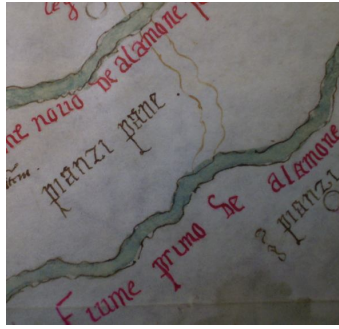 me nouo de alamone
pianzi pane
Fiume primo de alamone
pianzi